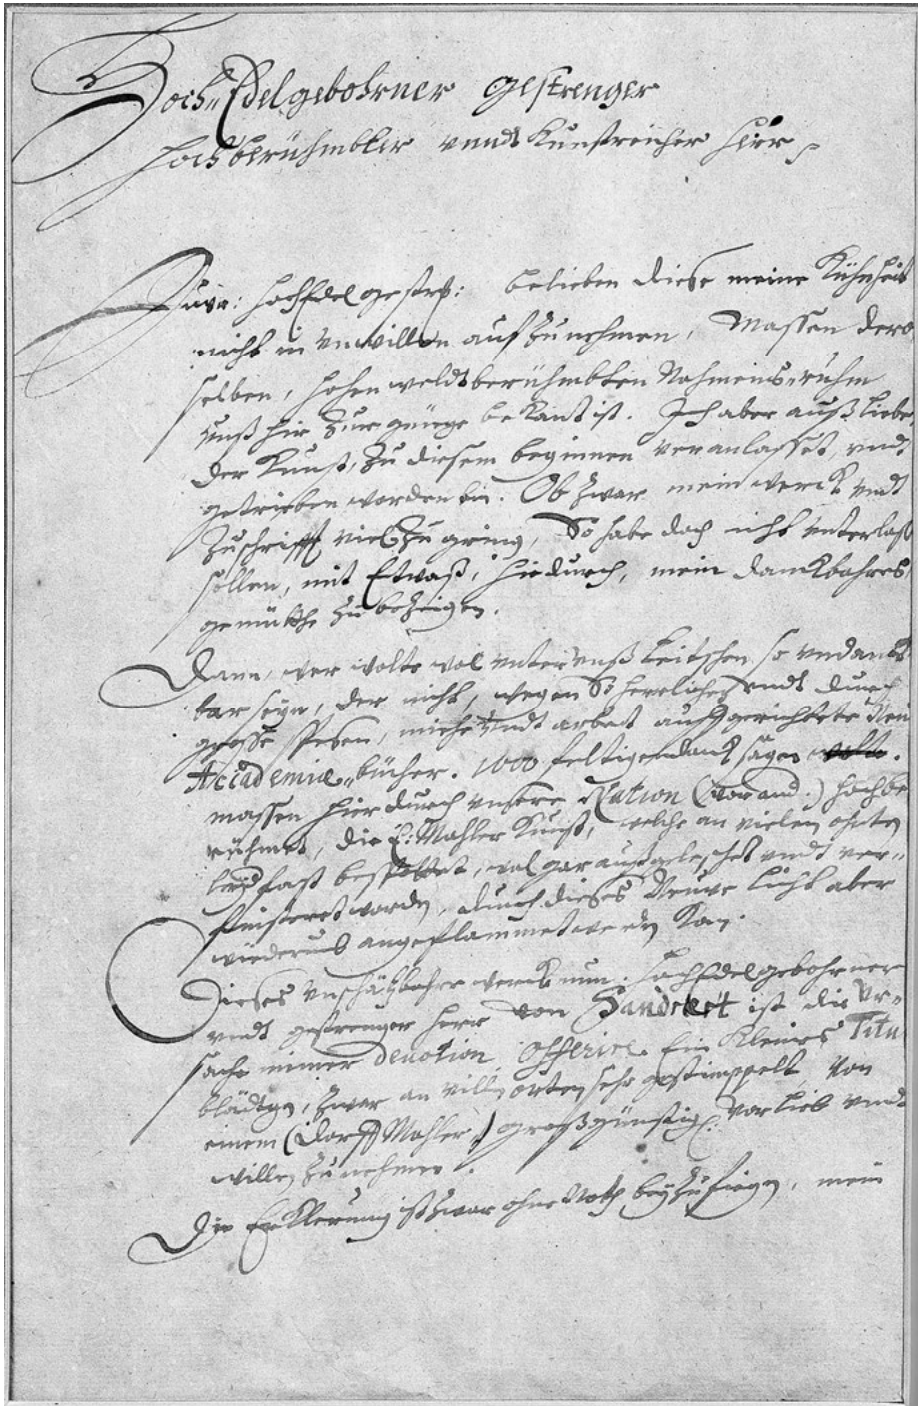 Hoch Edelgebohrner gestrenger
Hochberühmbter vnndt Kunstreicher Herr
Euer: HochEdel gestr: belieben diese meine Kühnheit
nicht in vnwillen auf Zunehmen, Massen dero
selben, hohen weldtberühmbten Nahmens ruhm
vnß hir Zur genüge bekant ist. Ich aber auß liebe
der Kunst, Zu diesem beginnen veranlasset, vndt
getrieben worden bin. Ob Zwar mein werck vndt
Zuschrifft viel Zu gring, So habe doch nicht vnterlaß
sollen, mit Etwaß, hiedurch, mein danckbahres
gemüthe Zu bezeigen.
Dann, wer wolte wol vnter vnß teutschen so vndanck
bar seyn, der nicht, wegen So herrlicher vndt durch
grosse spesen, mühe vndt arbeit auffgerichtete Neu
Accademiæ bücher. 1000 feltigen danck sagen wolte.
massen hierdurch vnsere Nation (vorand.) hochbe
rühmet, die E: Mahler Kunst, welche an vielen orten
fast wol gar außgeleschet vndt ver-
finstert worden, durch dieses Neuwe licht aber
wiederumb angeflammet werden kan.
Dieses vnschätzbahre werck nun, HochEdelgebohrner
vndt gestrenger Herr von Sandrart ist die Vr-
sache meiner devotion offerire Ein Kleines Titu
blädtgen, Zwar an villen orten sehr gestümppelt von
einem (Dorff Mahler) großgünstig. vorlieb vnndt
willen Zu nehmen.
Die Erklerung ist Zwar ohne Noth beyZufügen, mein